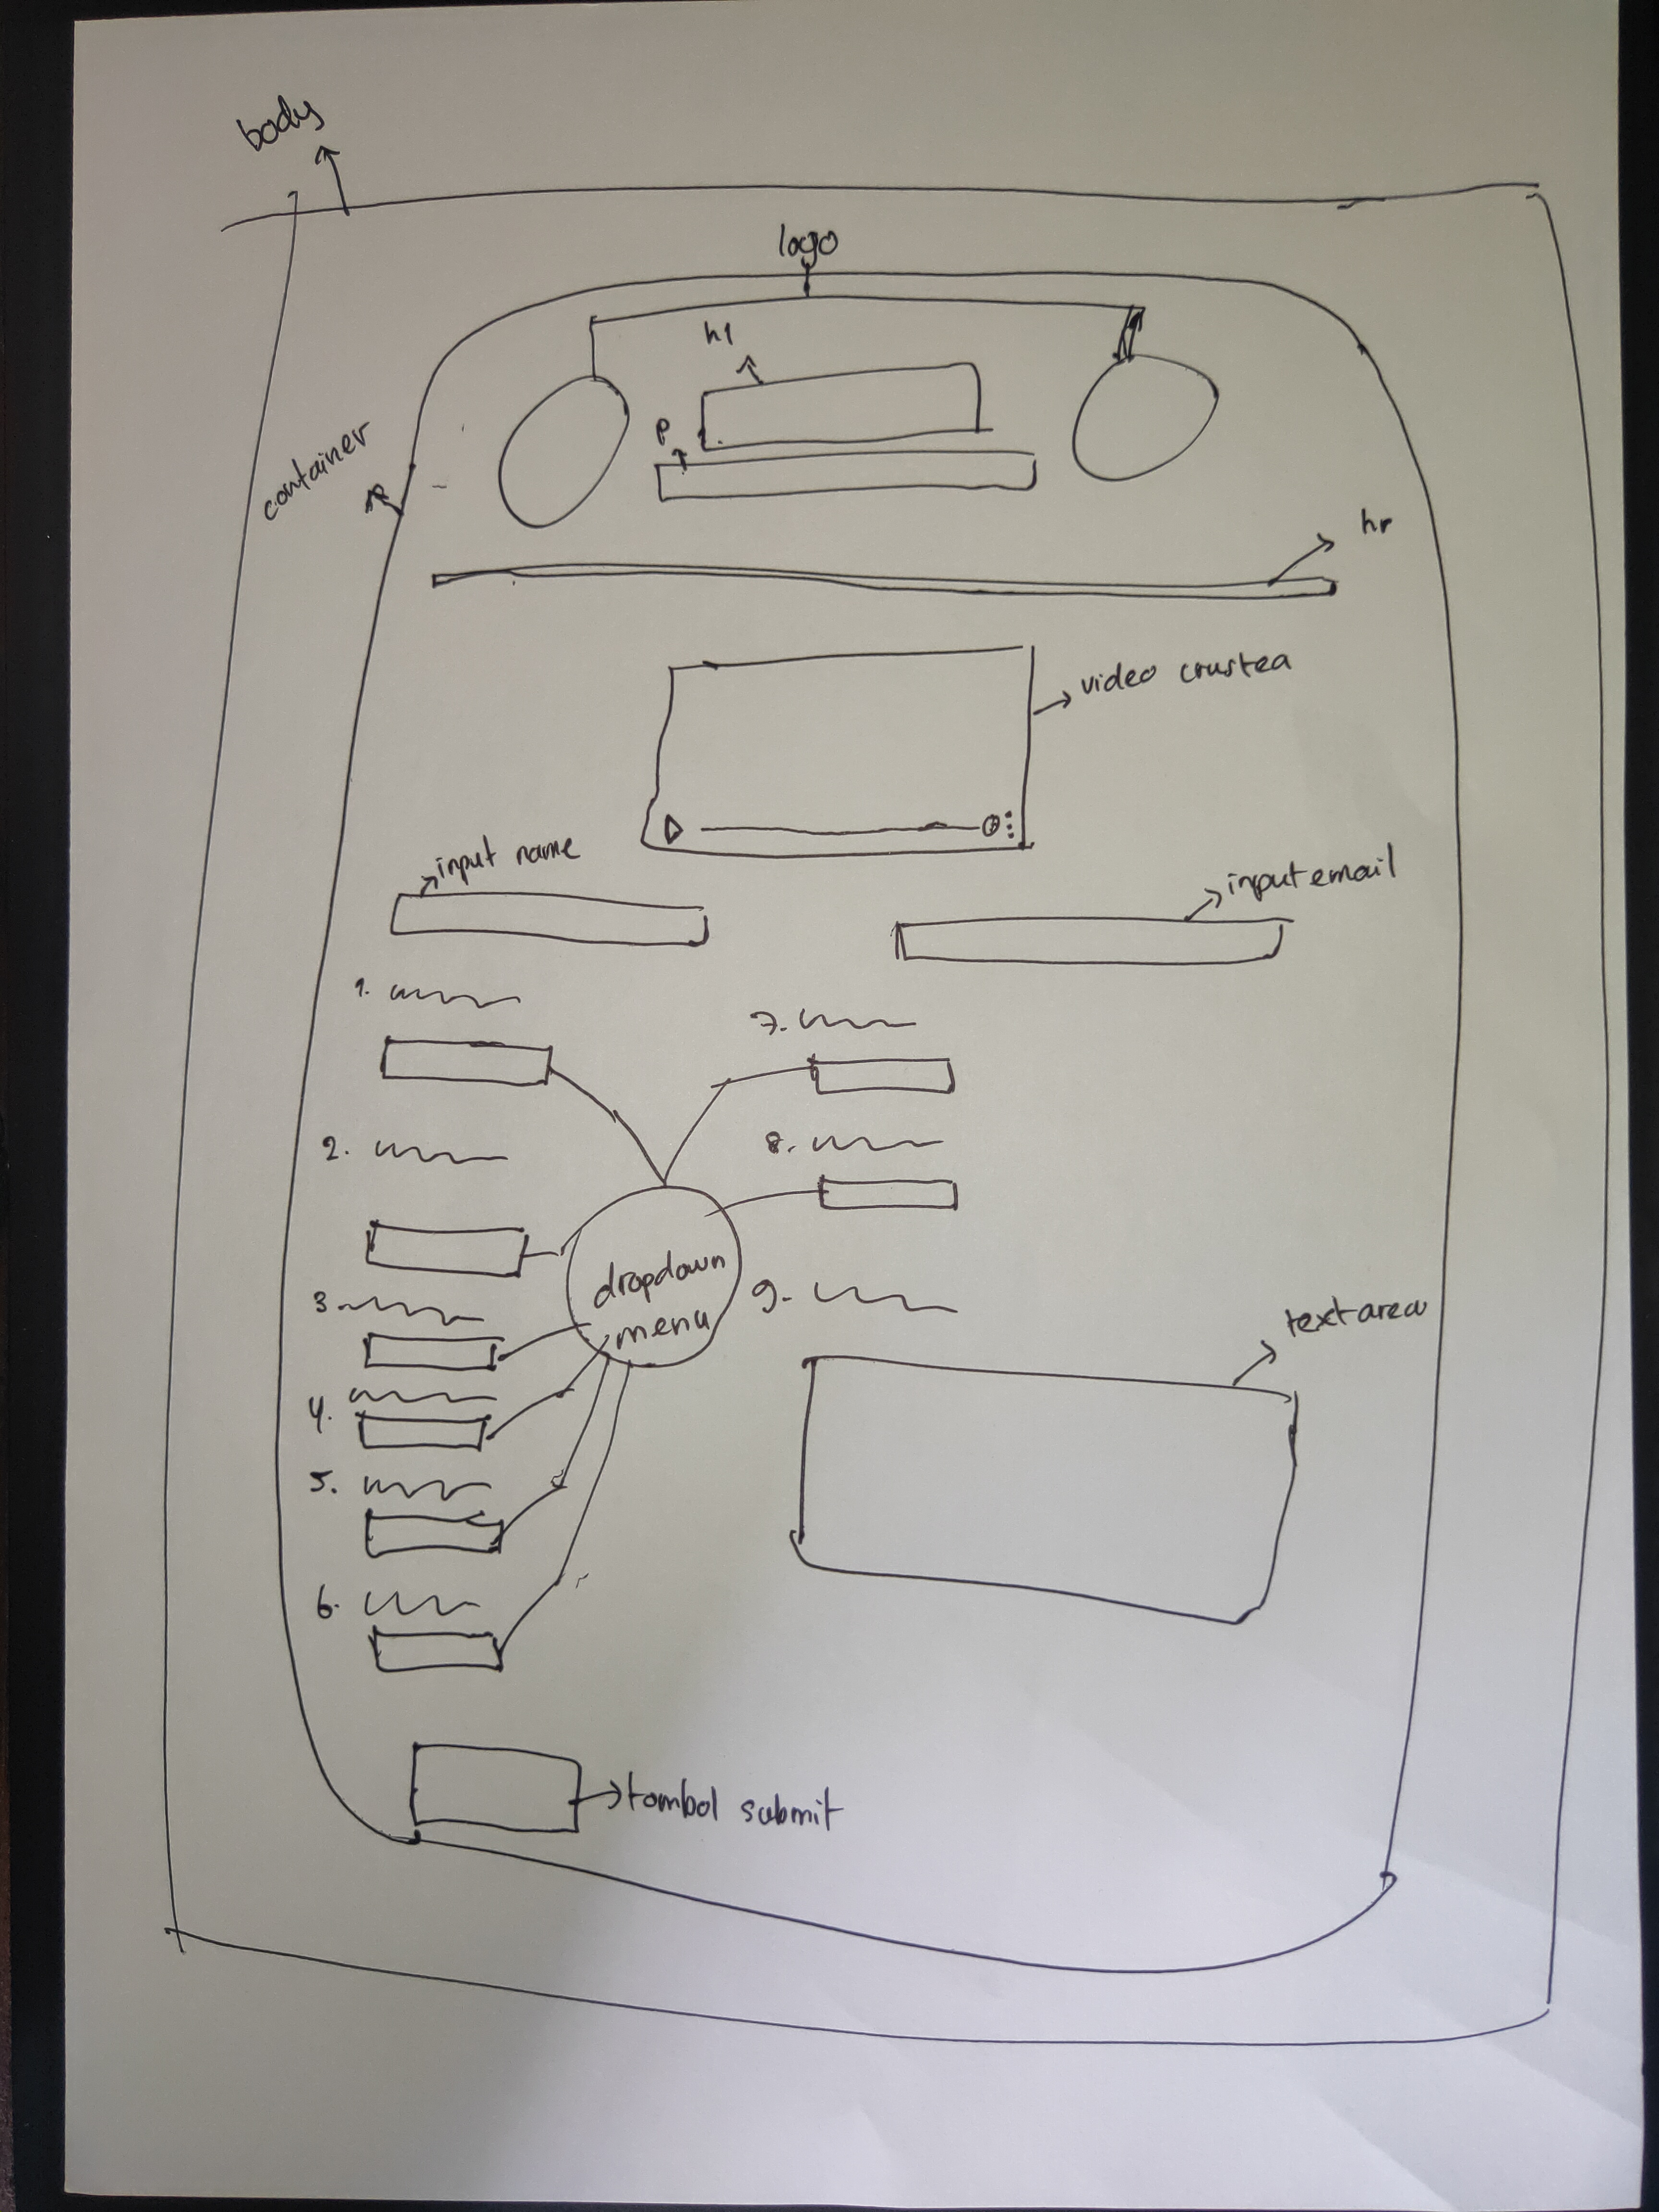 body
logo
h1
p
container
hr
video crustea
input name
input email
1.
7.
2.
8.
dropdown
menu
9.
3.
text area
4.
5.
6.
tombol submit